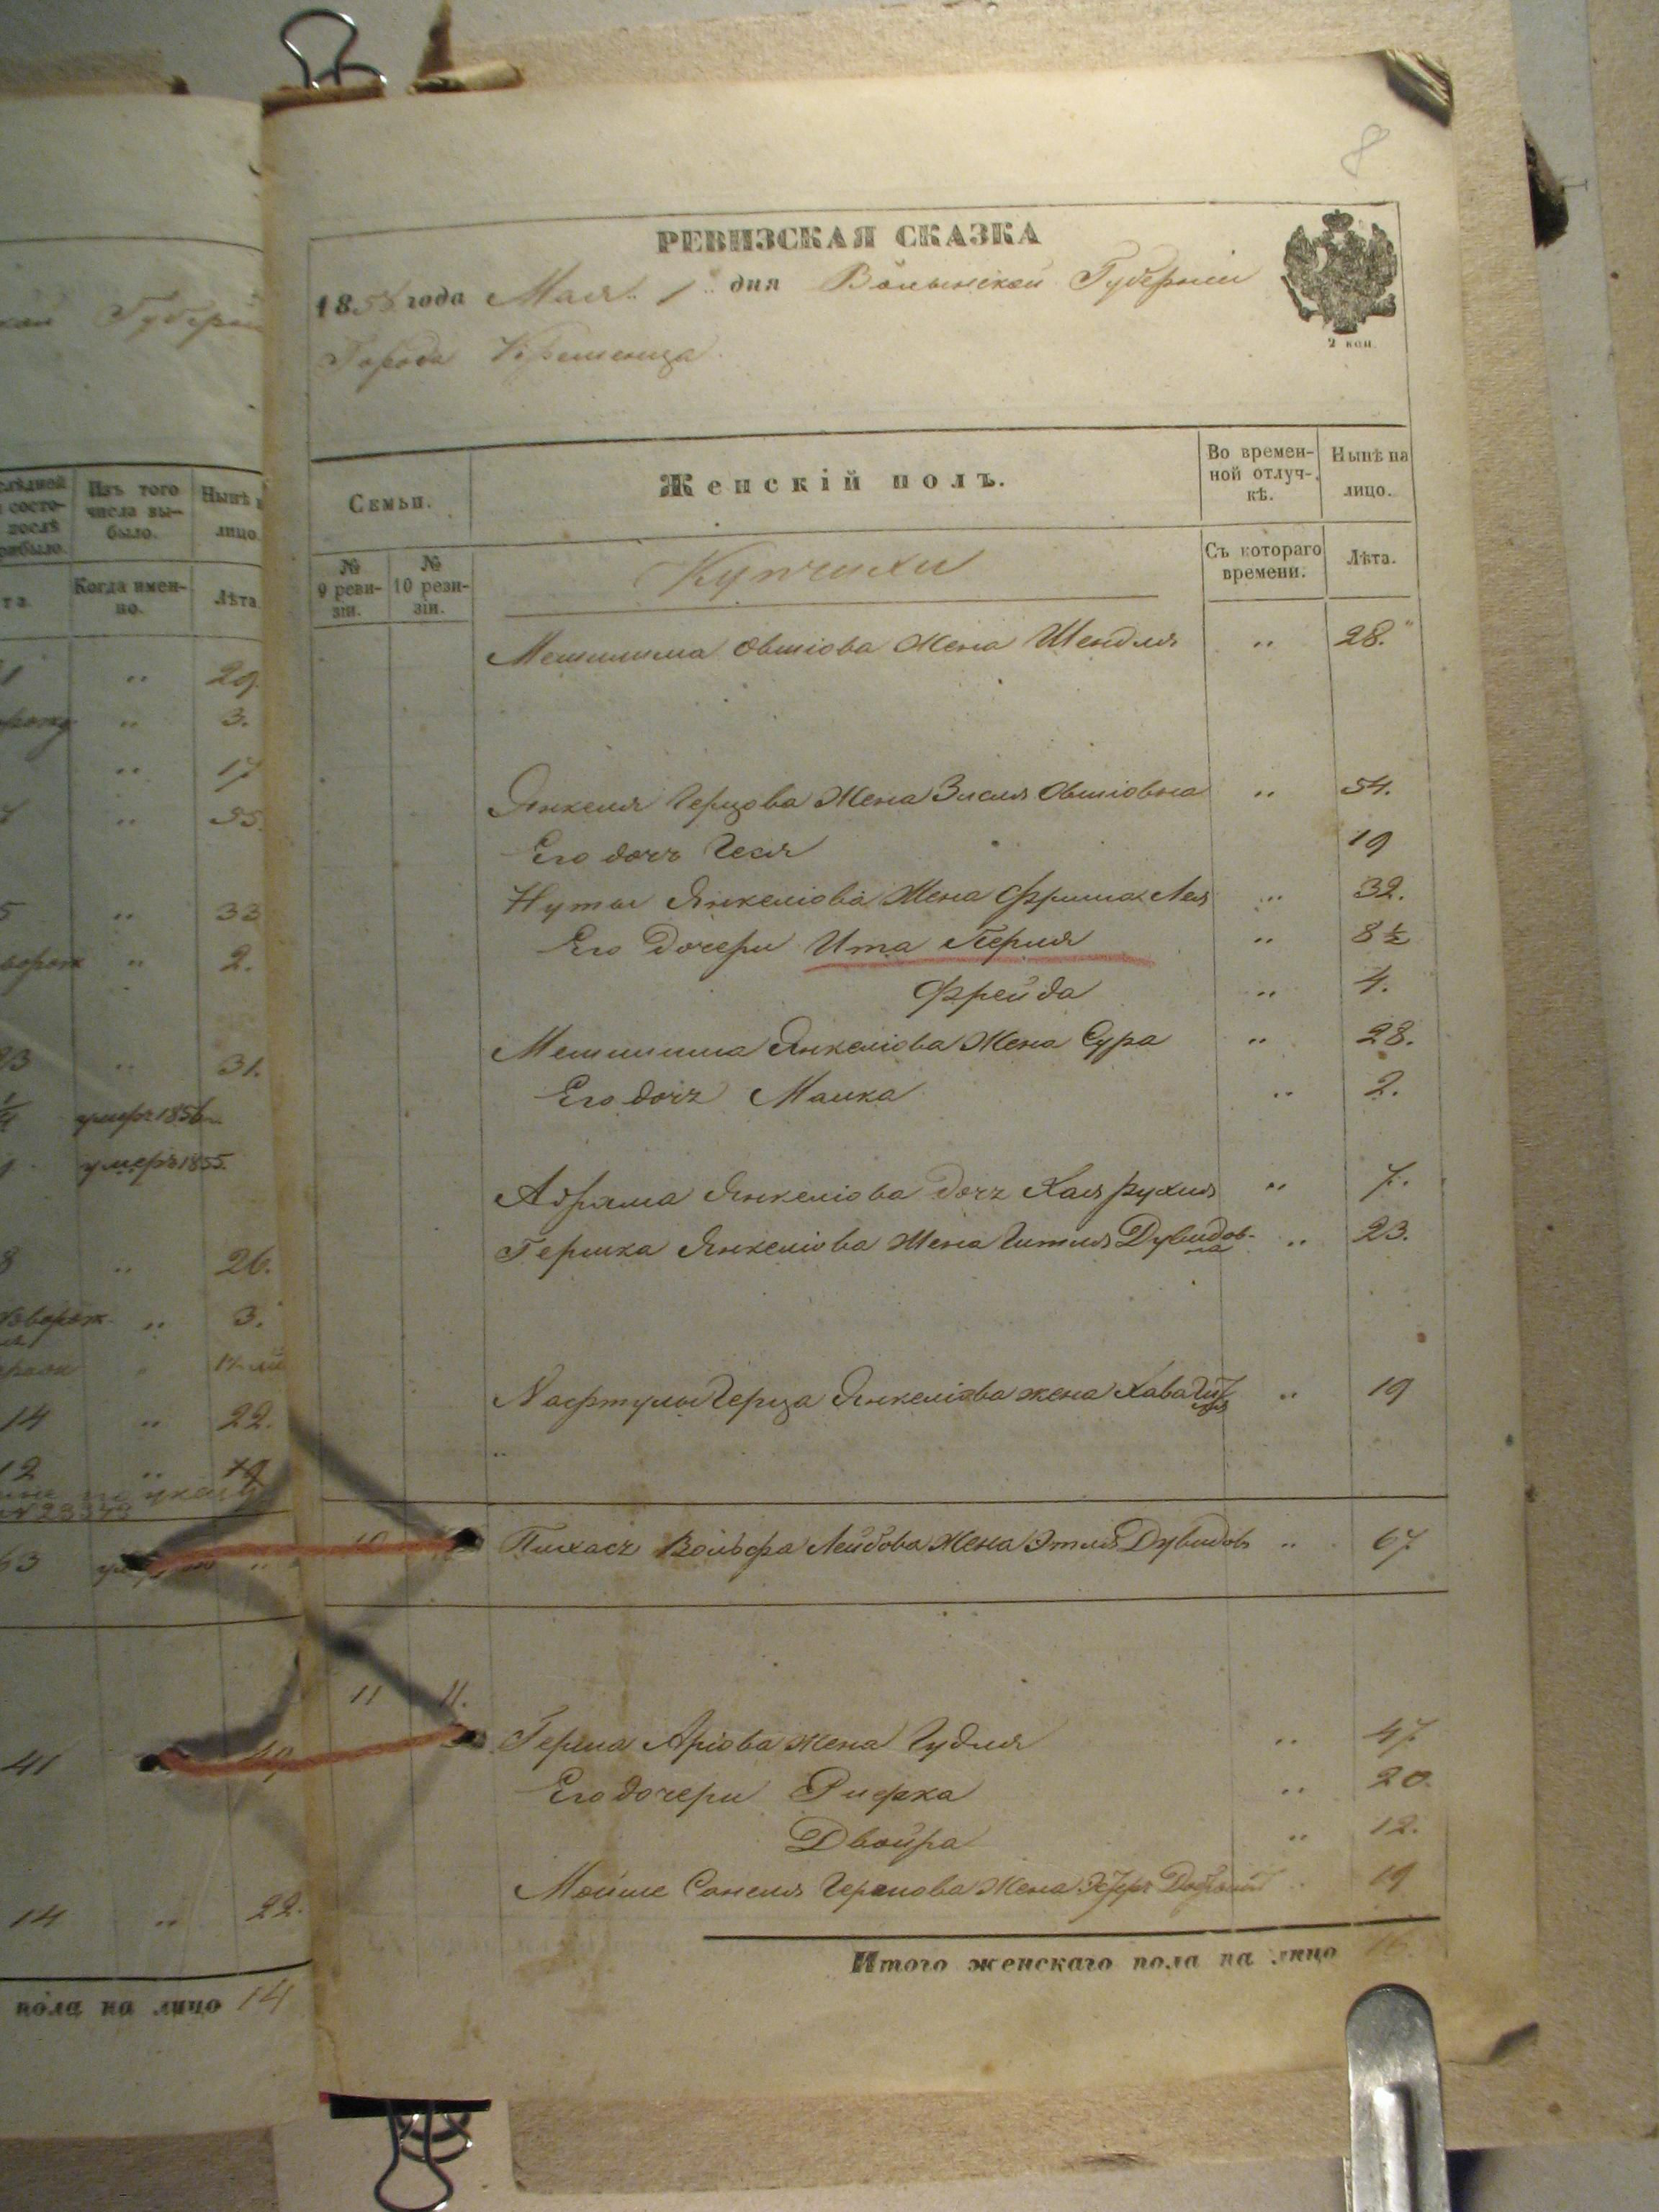 8
РЕВИЗСКАЯ СКАЗКА
1858 года Мая 1 дня Волынской Губернии
Города Кременца
2 коп.
Семьи.
Женскій полъ.
Во времен-
ной отлуч-
кѣ.
Нынѣ на
лицо.
№
9 реви-
зіи.
№
10 реви-
зіи.
Купчихи
Съ котораго
времени.
Лѣта.
Мешилима Овшіова Жена Шендля " 28.
Янкеля Герцова Жена Зисля Овшіовна " 54.
Его дочь Геся 19
Нуты Янкеліова Жена Фрима Лея " 32.
Его Дочери Ита Перля " 8 ½
Фрейда " 4.
Мешилима Янкеліова Жена Сура " 28.
Его дочь Малка " 2.
Абрама Янкеліова дочь Хая Рухля " 7.
Гершка Янкеліова Жена Гитля Дувидов-
на " 23.
Нафтулы Герца Янкеліова жена Хава " 19
10 Пинхасъ Вольфа Лейбова Жена Этля Дувидов " 67
11 11.
Герша Аріова жена Гудля " 47
Его дочери Рифка " 20.
Двойра " 12.
Мойше Санеля Гершова Жена " 19
Итого женскаго пола на лицо 16.
Губерніи
Изъ того
числа вы-
было.
Нынѣ на
лицо.
Когда имен-
но.
Лѣта
" 29.
" 3.
" 17
" 55.
" 33
" 2.
" 31.
умеръ 1856
умеръ 1855.
" 26.
" 3.
14 " 22.
12 " 19
63
41
14 " 22.
пола на лицо 14